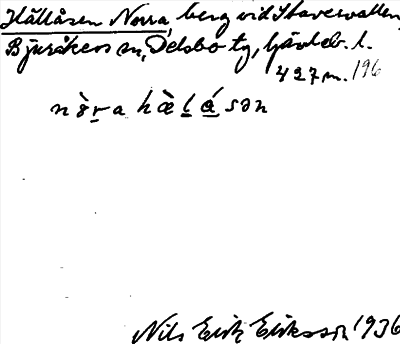 Hällåsen Norra, berg vid Stavervallen,
Bjuråkers sn, Delsbo tg, Gävleb. l.
427 m. 196
nòra hæ̀lásən
Nils Erik Eriksson 1936